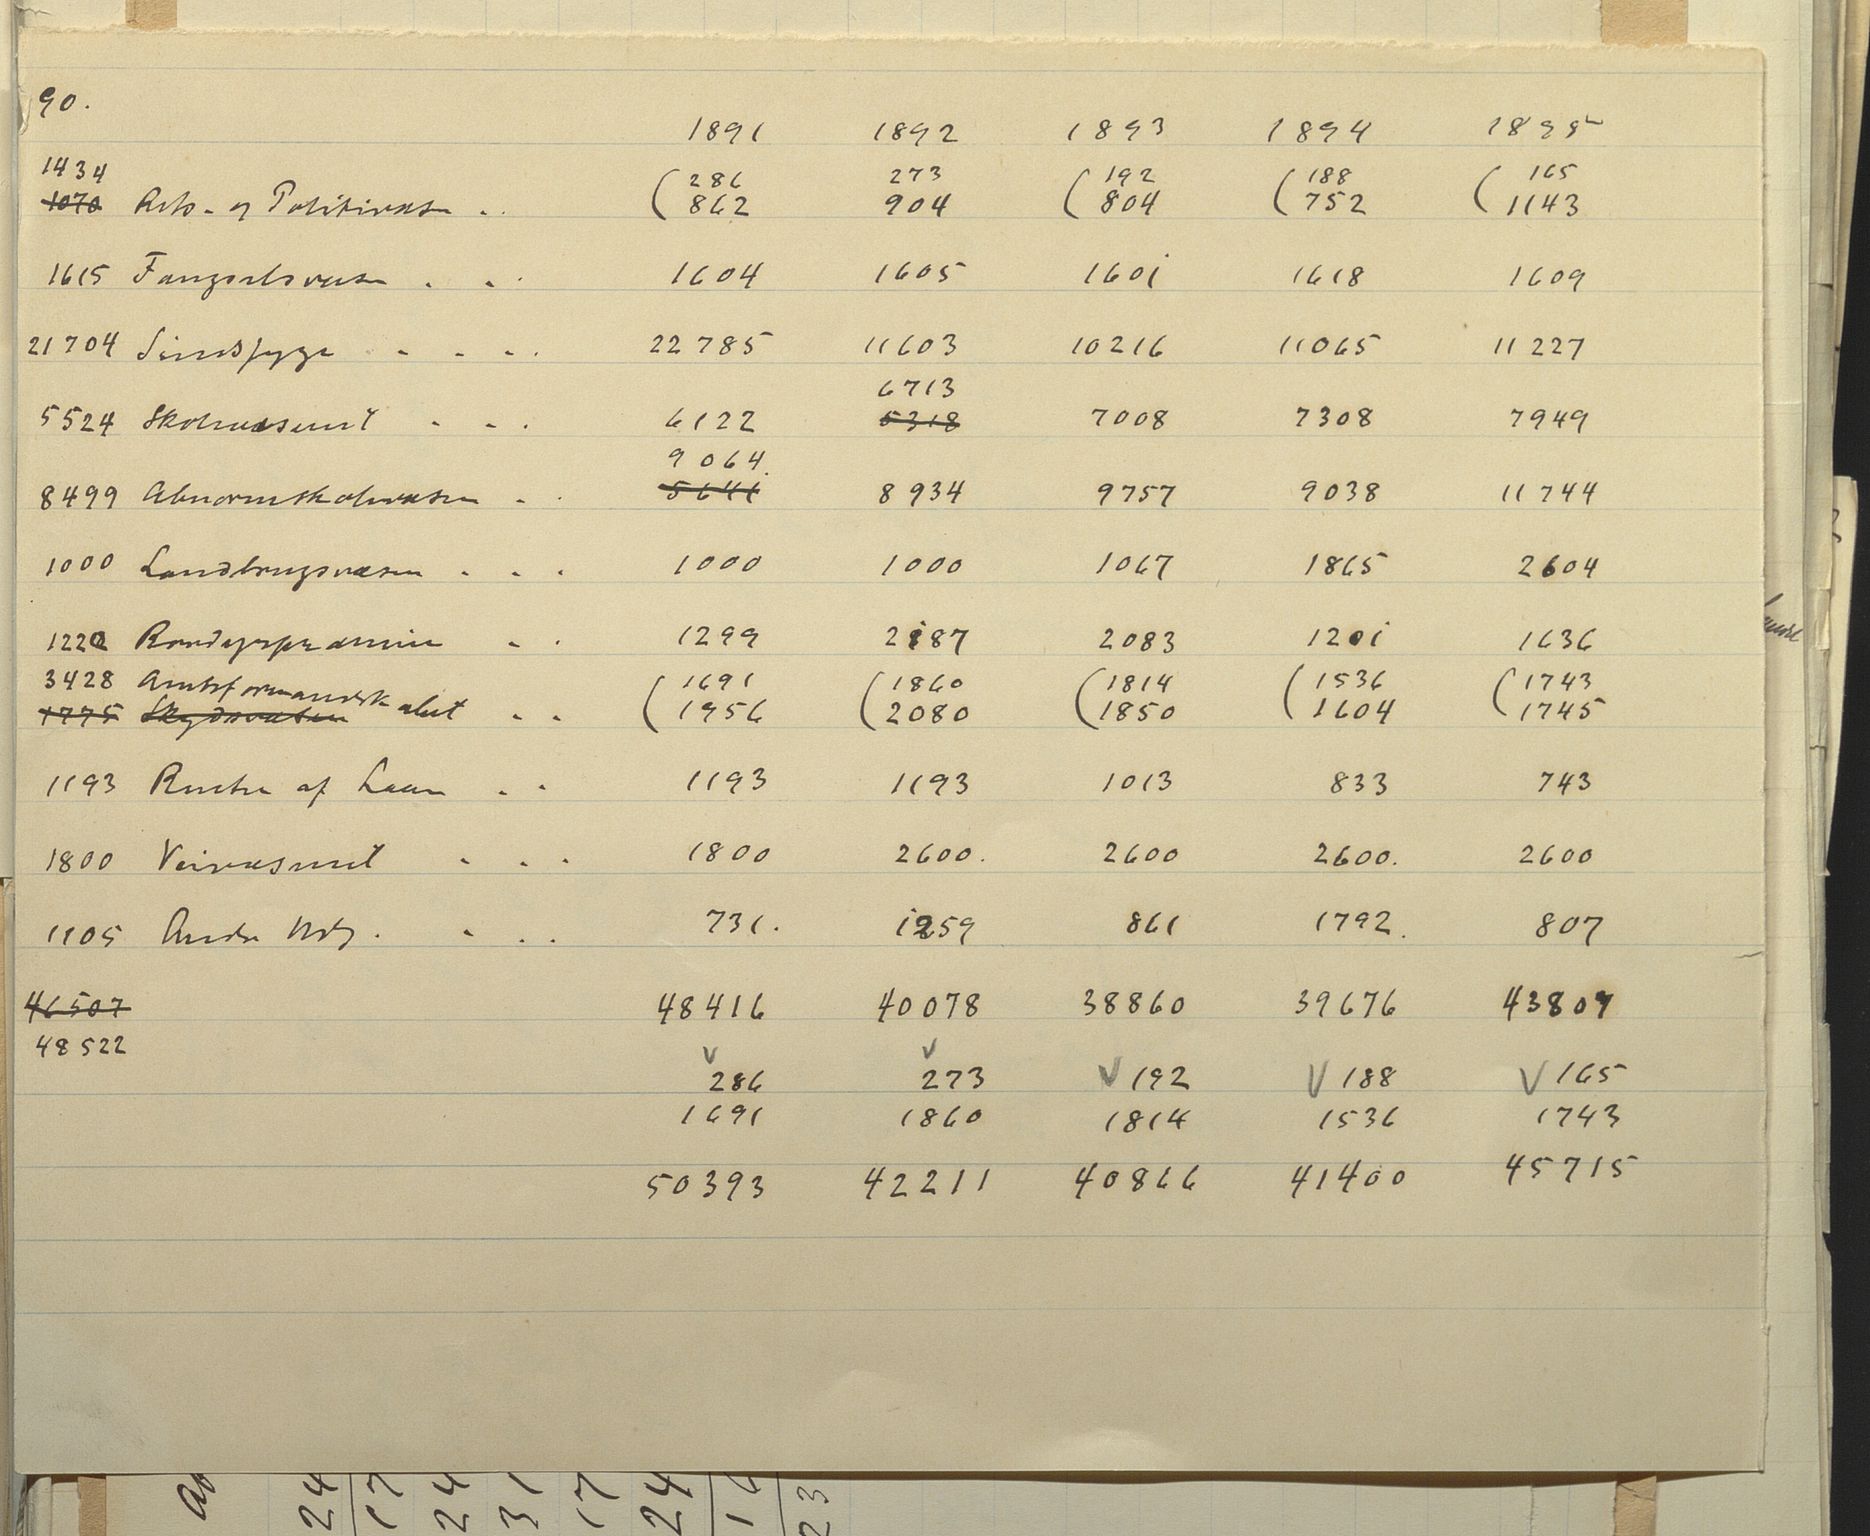 90.
1891 1892 1893 1894 1895
1434 286 273 192 188 165
1070 Rets- og Politivæsen 862 904 804 752 1143
1615 Fængselsvæsen 1604 1605 1601 1618 1609
21704 Sindssyge 22785 11603 10216 11065 11227
6713
5524 Skolevæsenet 6122 5318 7008 7308 7949
9064
8499 Abnormskolevæsen 5641 8934 9757 9038 11744
1000 Landbrugsvæsen 1000 1000 1067 1865 2604
1220 Rovdyrspræmier 1299 2187 2083 1201 1636
3428 Amtsformandskabet 1691 1860 1814 1536 1743
1775 Skydsvæsen 1956 2080 1850 1604 1745
1193 Renter af Laan 1193 1193 1013 833 743
1800 Veivæsenet 1800 2600. 2600 2600. 2600
1105 Andre Udg. 731. 1259 861 1792. 807
46507 48416 40078 38860 39676 43807
48522
286 273 192 188 165
1691 1860 1814 1536 1743
50393 42211 40866 41400 45715
24 17 24 31 17 24 23